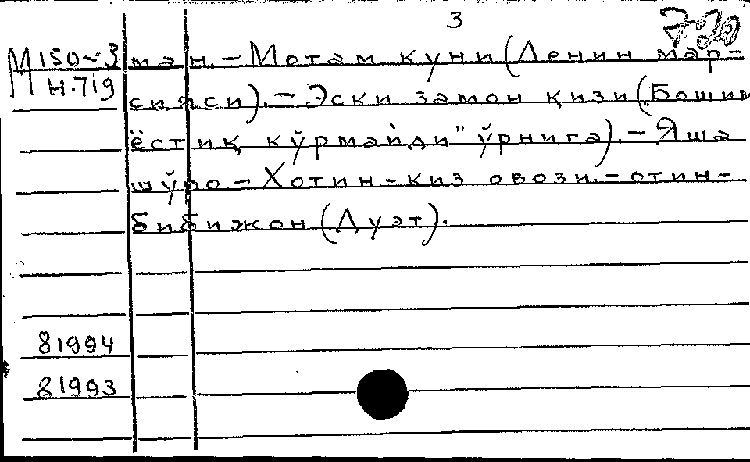 3
7-20
М 150-3 ман. - Мотам куни (Ленин мар-
Н.719 сияси). - Эски замон қизи (Бошим
ёстиқ кўрмайди" ўрнига). - Яша
шўро - Хотин-қиз овози. - отин-
бибижон (Дуэт).
81994
81993